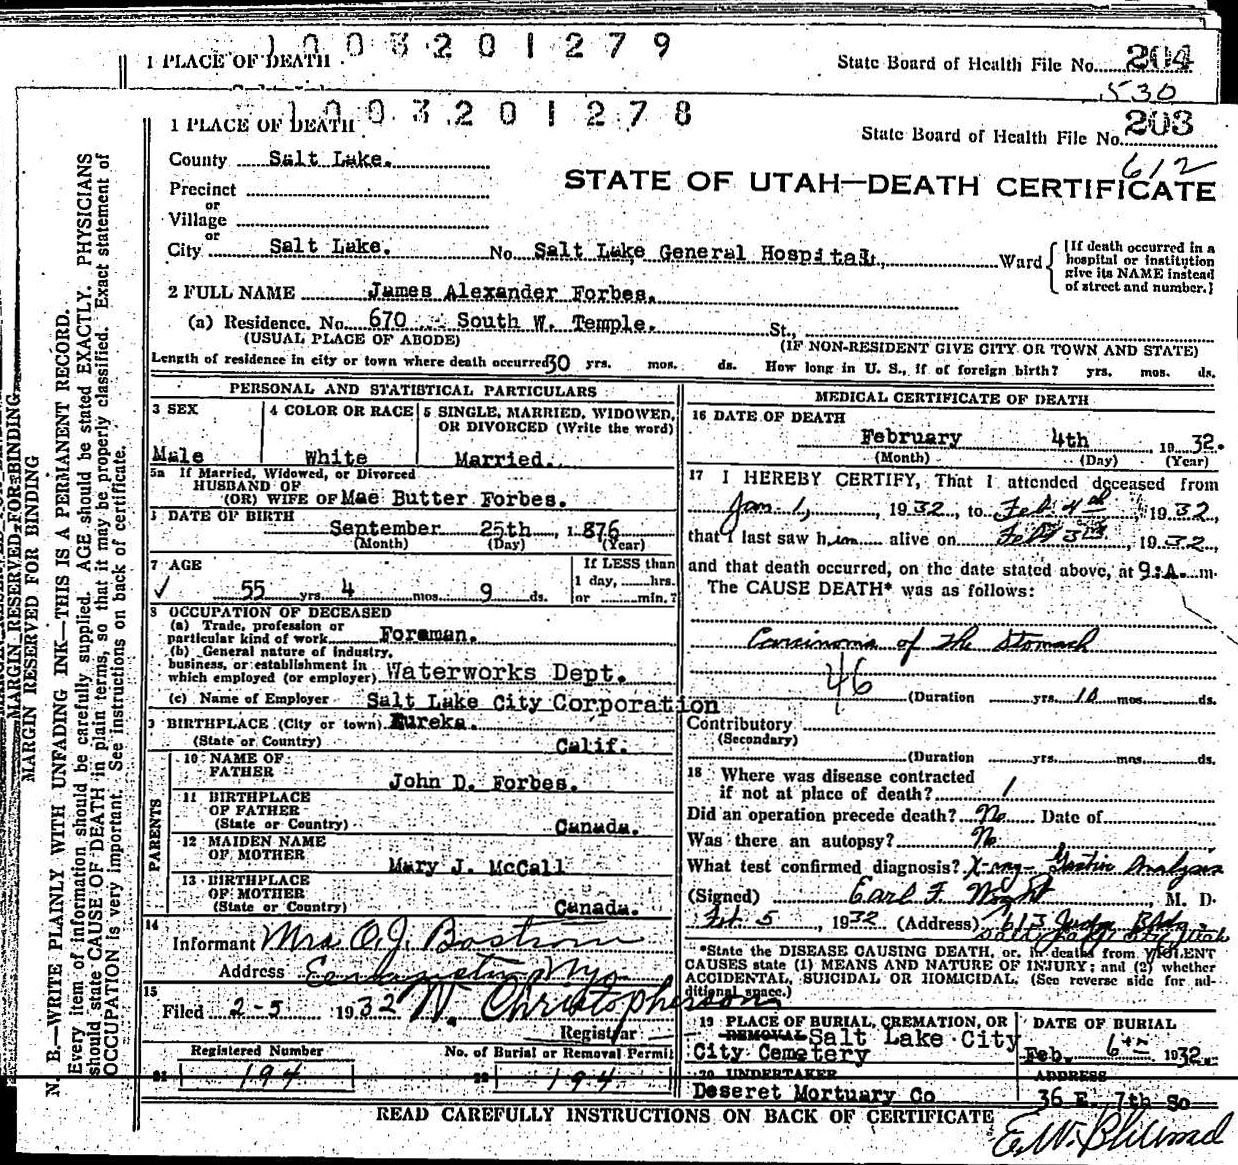 1003201279
1 PLACE OF DEATH
State Board of Health File No. 204
530
1003201278
1 PLACE OF DEATH
State Board of Health File No. 203
612
County Salt Lake.
STATE OF UTAH—DEATH CERTIFICATE
Precinct
or
Village
or
City Salt Lake. No. Salt Lake General Hospital, Ward
[If death occurred in a
hospital or institution
give its NAME instead
of street and number.]
2 FULL NAME James Alexander Forbes.
(a) Residence. No. 670 South W. Temple. St.,
(USUAL PLACE OF ABODE) (IF NON-RESIDENT GIVE CITY OR TOWN AND STATE)
Length of residence in city or town where death occurred 30 yrs. mos. ds. How long in U. S., if of foreign birth? yrs. mos. ds.
PERSONAL AND STATISTICAL PARTICULARS
3 SEX 4 COLOR OR RACE 5 SINGLE, MARRIED, WIDOWED,
OR DIVORCED (Write the word)
Male White Married.
5a If Married, Widowed, or Divorced
HUSBAND OF
(OR) WIFE OF Mae Butter Forbes.
DATE OF BIRTH
September 25th, 1876
(Month) (Day) (Year)
7 AGE If LESS than
1 day, hrs.
✓ 55 yrs. 4 mos. 9 ds. or min.?
8 OCCUPATION OF DECEASED
(a) Trade, profession or
particular kind of work Foreman.
(b) General nature of industry,
business, or establishment in
which employed (or employer) Waterworks Dept.
(c) Name of Employer Salt Lake City Corporation
9 BIRTHPLACE (City or town) Eureka.
(State or Country) Calif.
PARENTS
10 NAME OF
FATHER John D. Forbes.
11 BIRTHPLACE
OF FATHER
(State or Country) Canada.
12 MAIDEN NAME
OF MOTHER Mary J. McCall
13 BIRTHPLACE
OF MOTHER
(State or Country) Canada.
14
Informant Mrs O. J. Bostrom
Address Wyo
15
Filed 2-5 1932 W. Christopherson
Registrar
Registered Number No. of Burial or Removal Permit
21 194 22 194
MEDICAL CERTIFICATE OF DEATH
16 DATE OF DEATH
February 4th 1932.
(Month) (Day) (Year)
17 I HEREBY CERTIFY, That I attended deceased from
Jan. 1, 1932, to Feb. 4th, 1932,
that I last saw him alive on Feb 3rd, 1932,
and that death occurred, on the date stated above, at 9:A. m.
The CAUSE DEATH* was as follows:
Carcinoma of the Stomach
46
(Duration yrs. 10 mos. ds.
Contributory
(Secondary)
(Duration yrs. mos. ds.
18 Where was disease contracted
if not at place of death?
Did an operation precede death? No Date of
Was there an autopsy? No
What test confirmed diagnosis? X-ray- Gastric Analysis
(Signed) Earl F. Wight, M. D.
Feb. 5, 1932 (Address) 613 Judge Bldg.
Salt Lake City, Utah
*State the DISEASE CAUSING DEATH, or, in deaths from VIOLENT
CAUSES state (1) MEANS AND NATURE OF INJURY; and (2) whether
ACCIDENTAL, SUICIDAL OR HOMICIDAL. (See reverse side for ad-
ditional space.)
19 PLACE OF BURIAL, CREMATION, OR DATE OF BURIAL
REMOVAL Salt Lake City
City Cemetery Feb. 6th 1932.
20 UNDERTAKER ADDRESS
Deseret Mortuary Co 36 E. 7th So
READ CAREFULLY INSTRUCTIONS ON BACK OF CERTIFICATE
E. W.
MARGIN RESERVED FOR BINDING
MARGIN RESERVED FOR BINDING
N. B.—WRITE PLAINLY WITH UNFADING INK—THIS IS A PERMANENT RECORD.
Every item of information should be carefully supplied. AGE should be stated EXACTLY. PHYSICIANS
should state CAUSE OF DEATH in plain terms, so that it may be properly classified. Exact statement of
OCCUPATION is very important. See instructions on back of certificate.